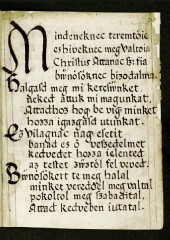 Mindeneknec teremtöie
es hiueknec megualtoia
Christus Attanac sz: fia
bwnösöknec bizodalma.
Halgasd meg mi keresünket
neked attuk mi magunkat.
Attadhoz hog be vig minket
hozza igazgasd utunkat.
Ez vilagnac nag esetit
banad es ö veszedelmet
kedvedet hozza ielented
az testet zwztöl fel veved.
Bwnösökert te meg halal
minket vereddel meg valtal
pokoltol meg szabadital,
Attad kedveben iuttatal.